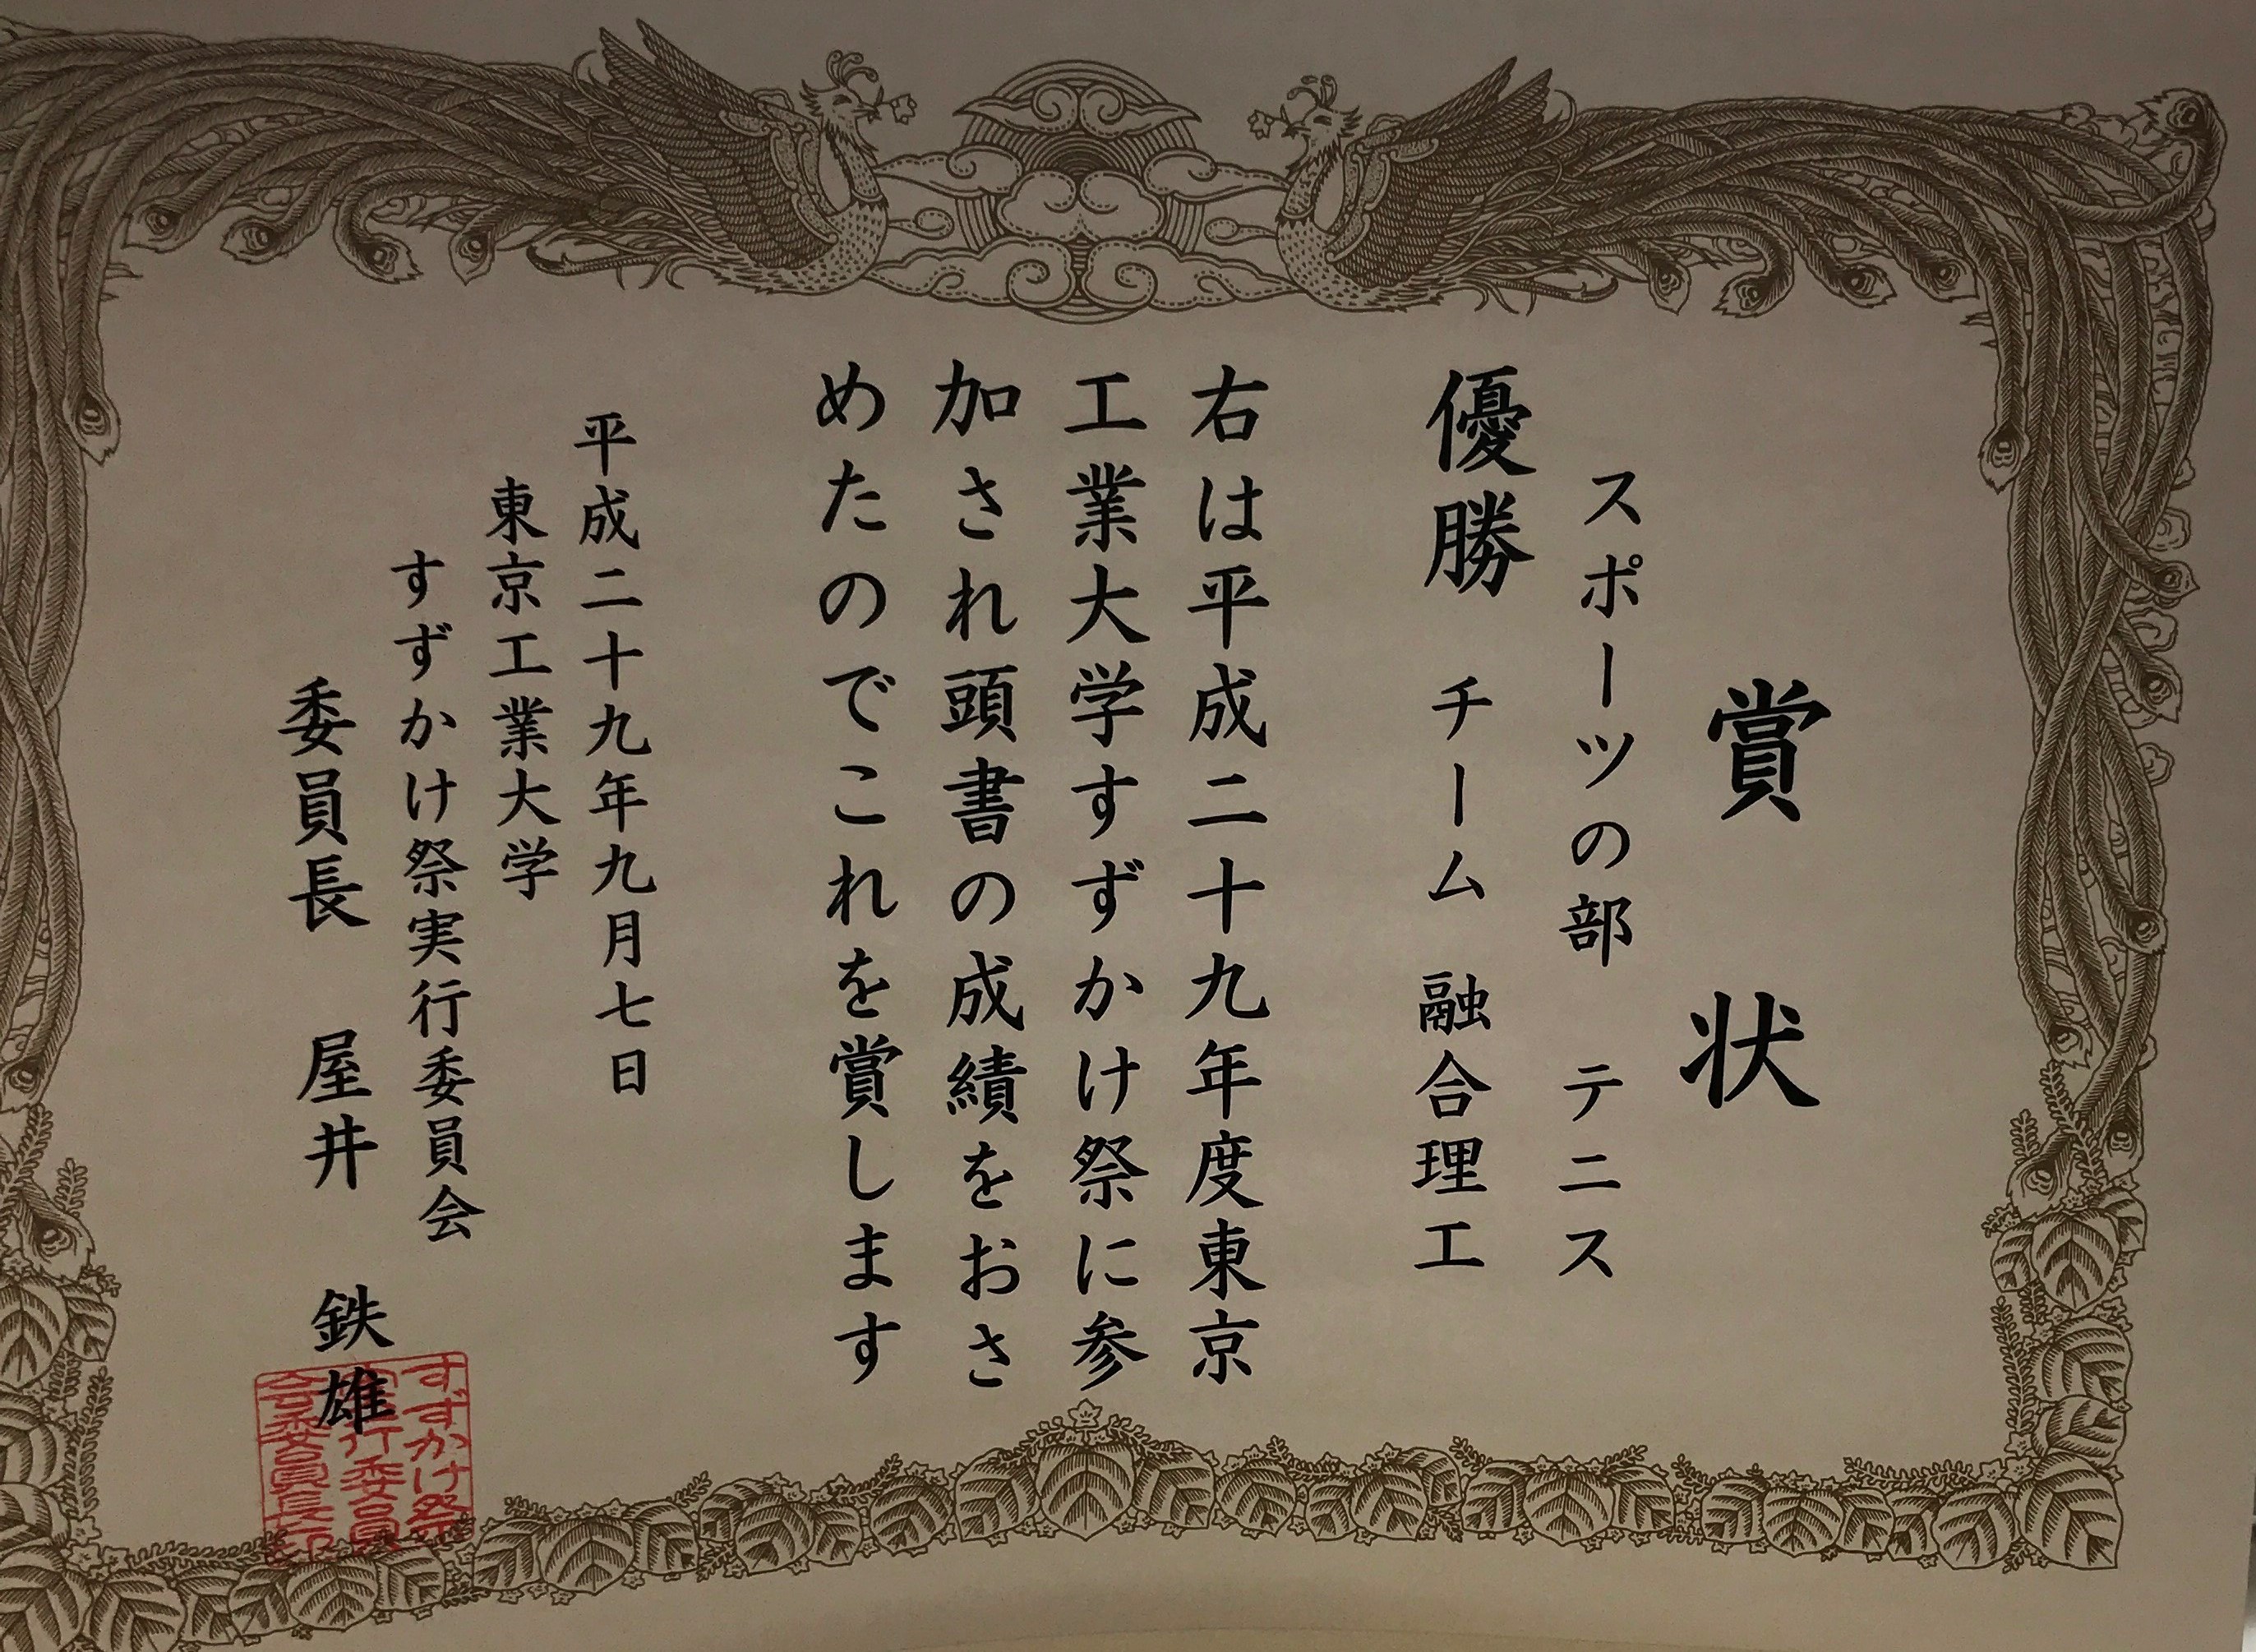 賞状
スポーツの部 テニス
優勝 チーム 融合理工
右は平成二十九年度東京
工業大学すずかけ祭に参
加され頭書の成績をおさ
めたのでこれを賞します
平成二十九年九月七日
東京工業大学
すずかけ祭実行委員会
委員長 屋井 鉄雄